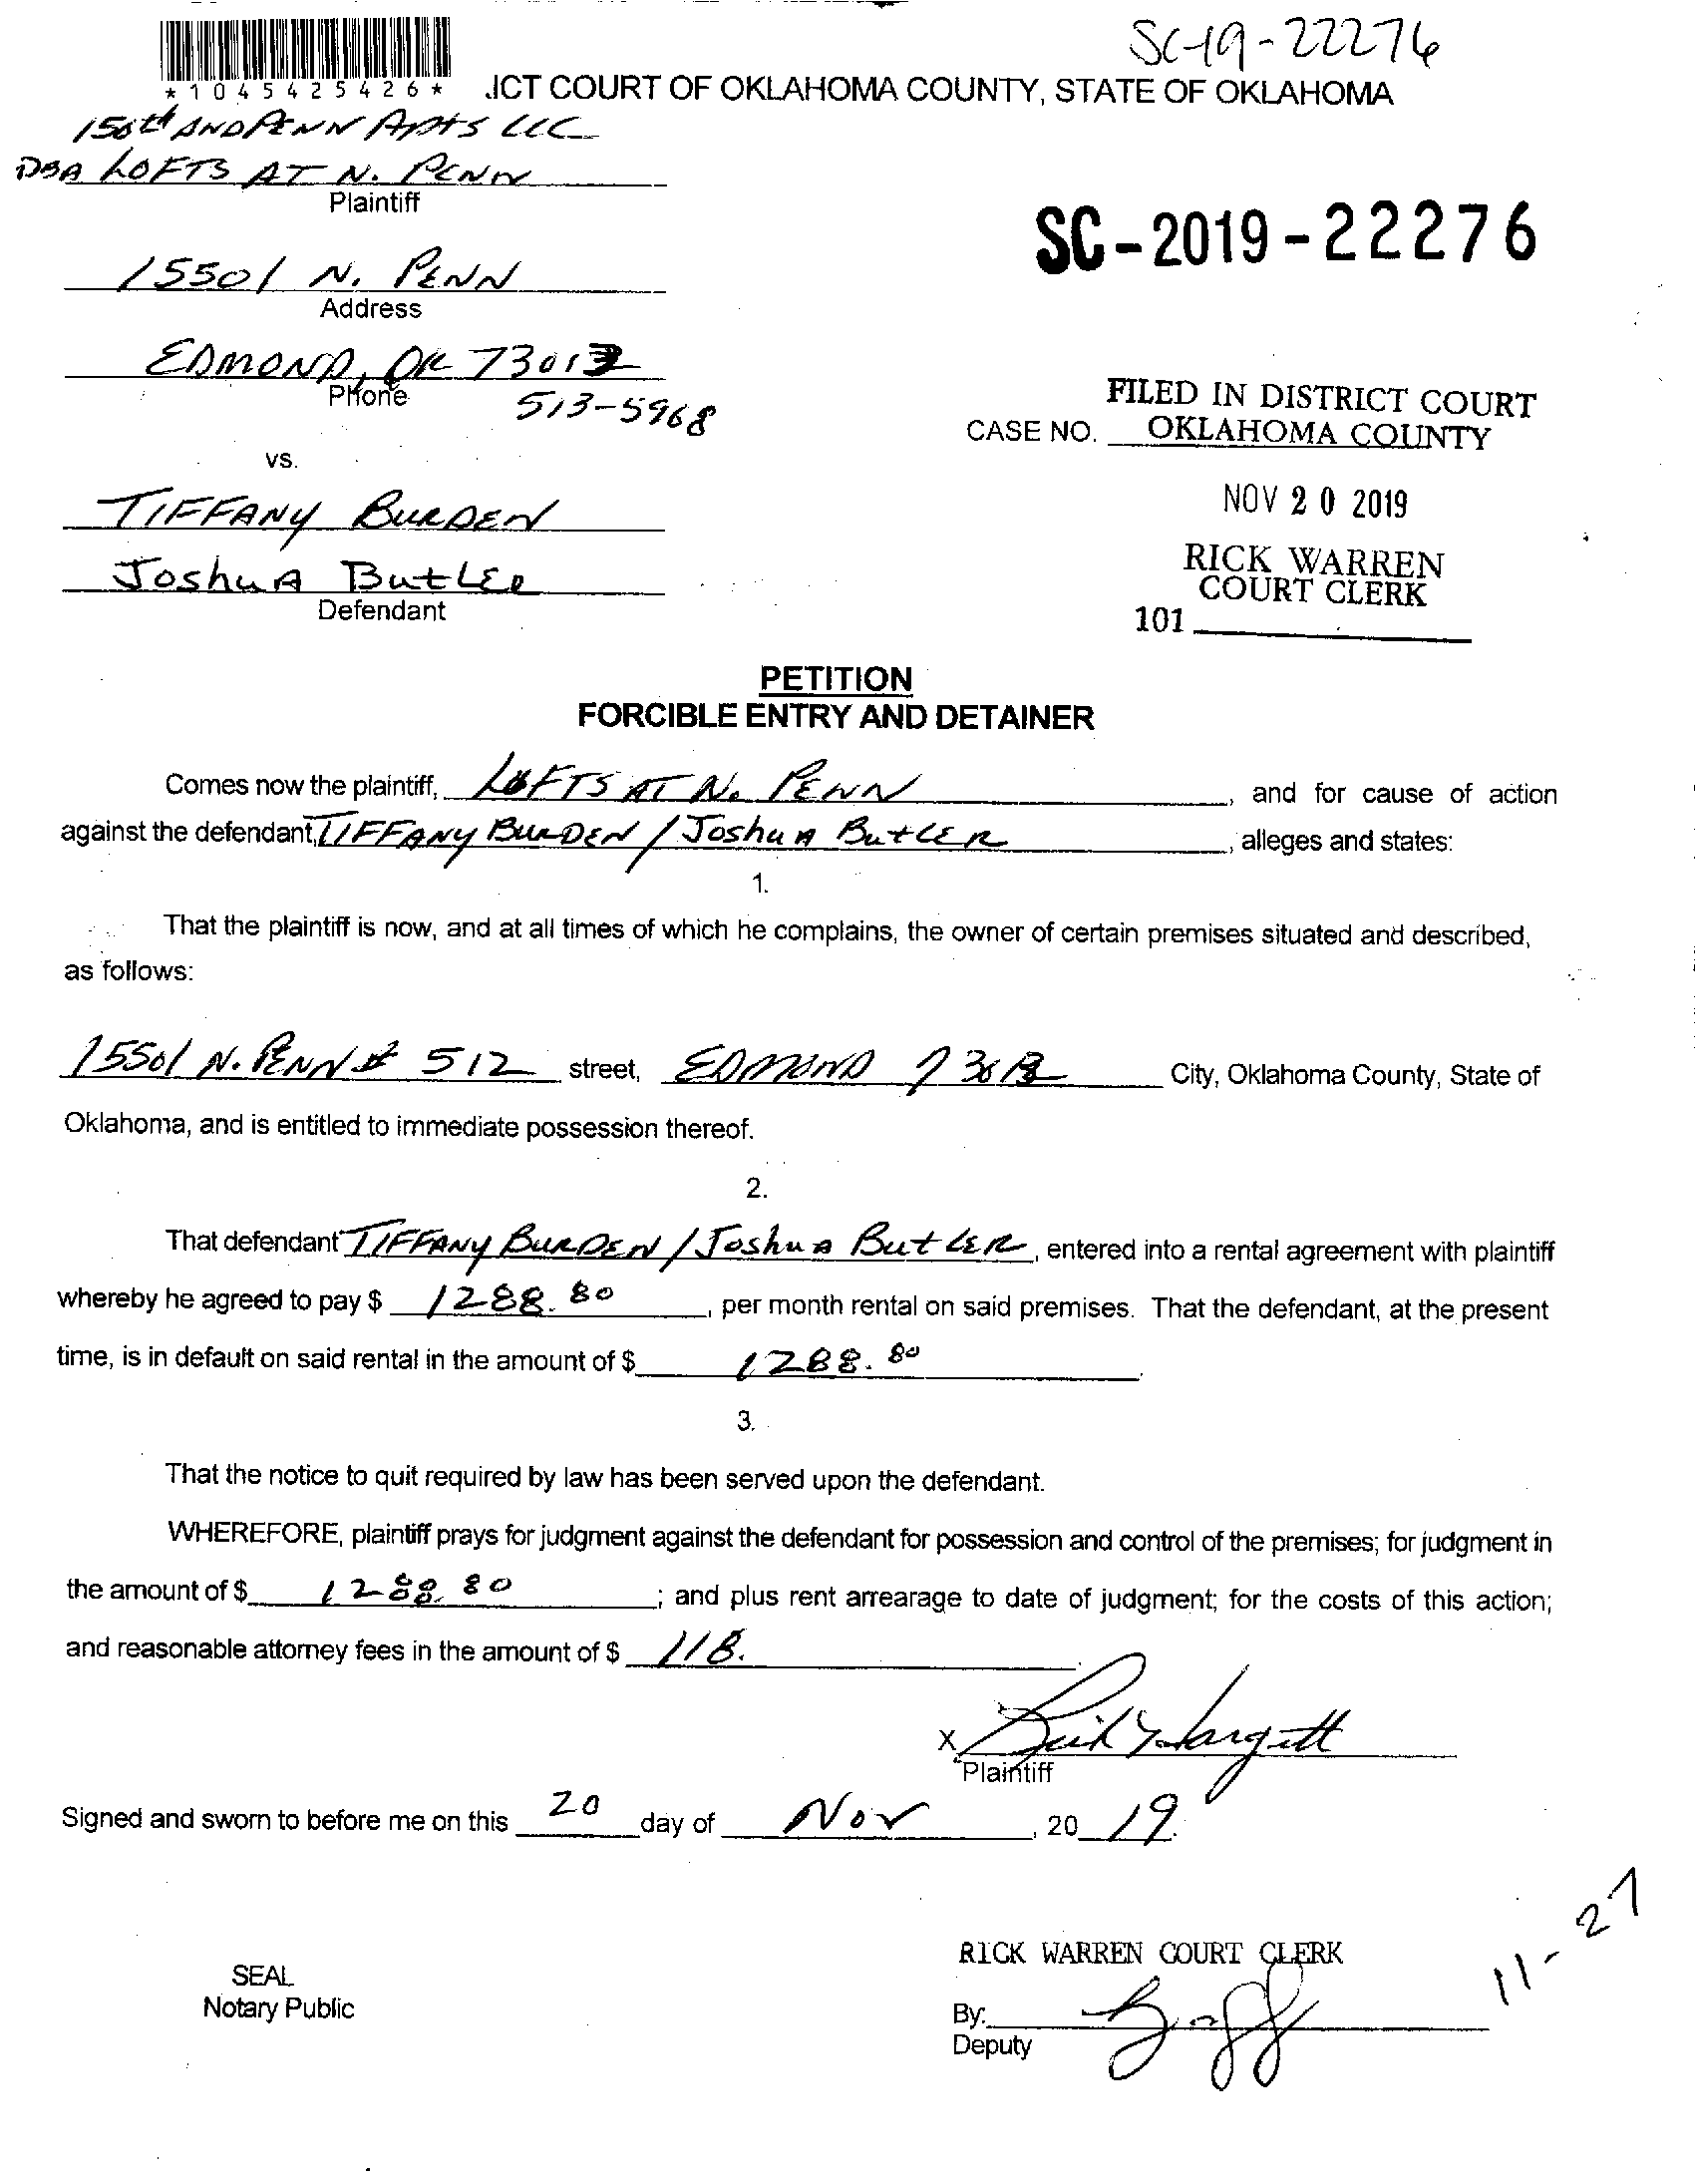 SC-19-22276
*1045425426*
.ICT COURT OF OKLAHOMA COUNTY, STATE OF OKLAHOMA
150th AND PENN Apts LLC
DBA LOFTS AT N. PENN
Plaintiff
SC-2019-22276
15501 N. PENN
Address
EDMOND, OK 73013
Phone
513-5968
FILED IN DISTRICT COURT
CASE NO. OKLAHOMA COUNTY
vs.
NOV 20 2019
TIFFANY BURDEN
RICK WARREN
Joshua Butler
COURT CLERK
Defendant
101
PETITION
FORCIBLE ENTRY AND DETAINER
Comes now the plaintiff, LOFTS AT N. PENN, and for cause of action
against the defendant, TIFFANY BURDEN / Joshua Butler, alleges and states:
1.
That the plaintiff is now, and at all times of which he complains, the owner of certain premises situated and described,
as follows:
15501 N. PENN # 512 street, EDMOND 73013 City, Oklahoma County, State of
Oklahoma, and is entitled to immediate possession thereof.
2.
That defendant TIFFANY BURDEN / Joshua Butler, entered into a rental agreement with plaintiff
whereby he agreed to pay $ 1288.80, per month rental on said premises. That the defendant, at the present
time, is in default on said rental in the amount of $ 1288.80.
3.
That the notice to quit required by law has been served upon the defendant.
WHEREFORE, plaintiff prays for judgment against the defendant for possession and control of the premises; for judgment in
the amount of $ 1288.80; and plus rent arrearage to date of judgment; for the costs of this action;
and reasonable attorney fees in the amount of $ 118.
X
Plaintiff
Signed and sworn to before me on this 20 day of Nov, 20 19.
11-27
RICK WARREN COURT CLERK
SEAL
Notary Public
By:
Deputy